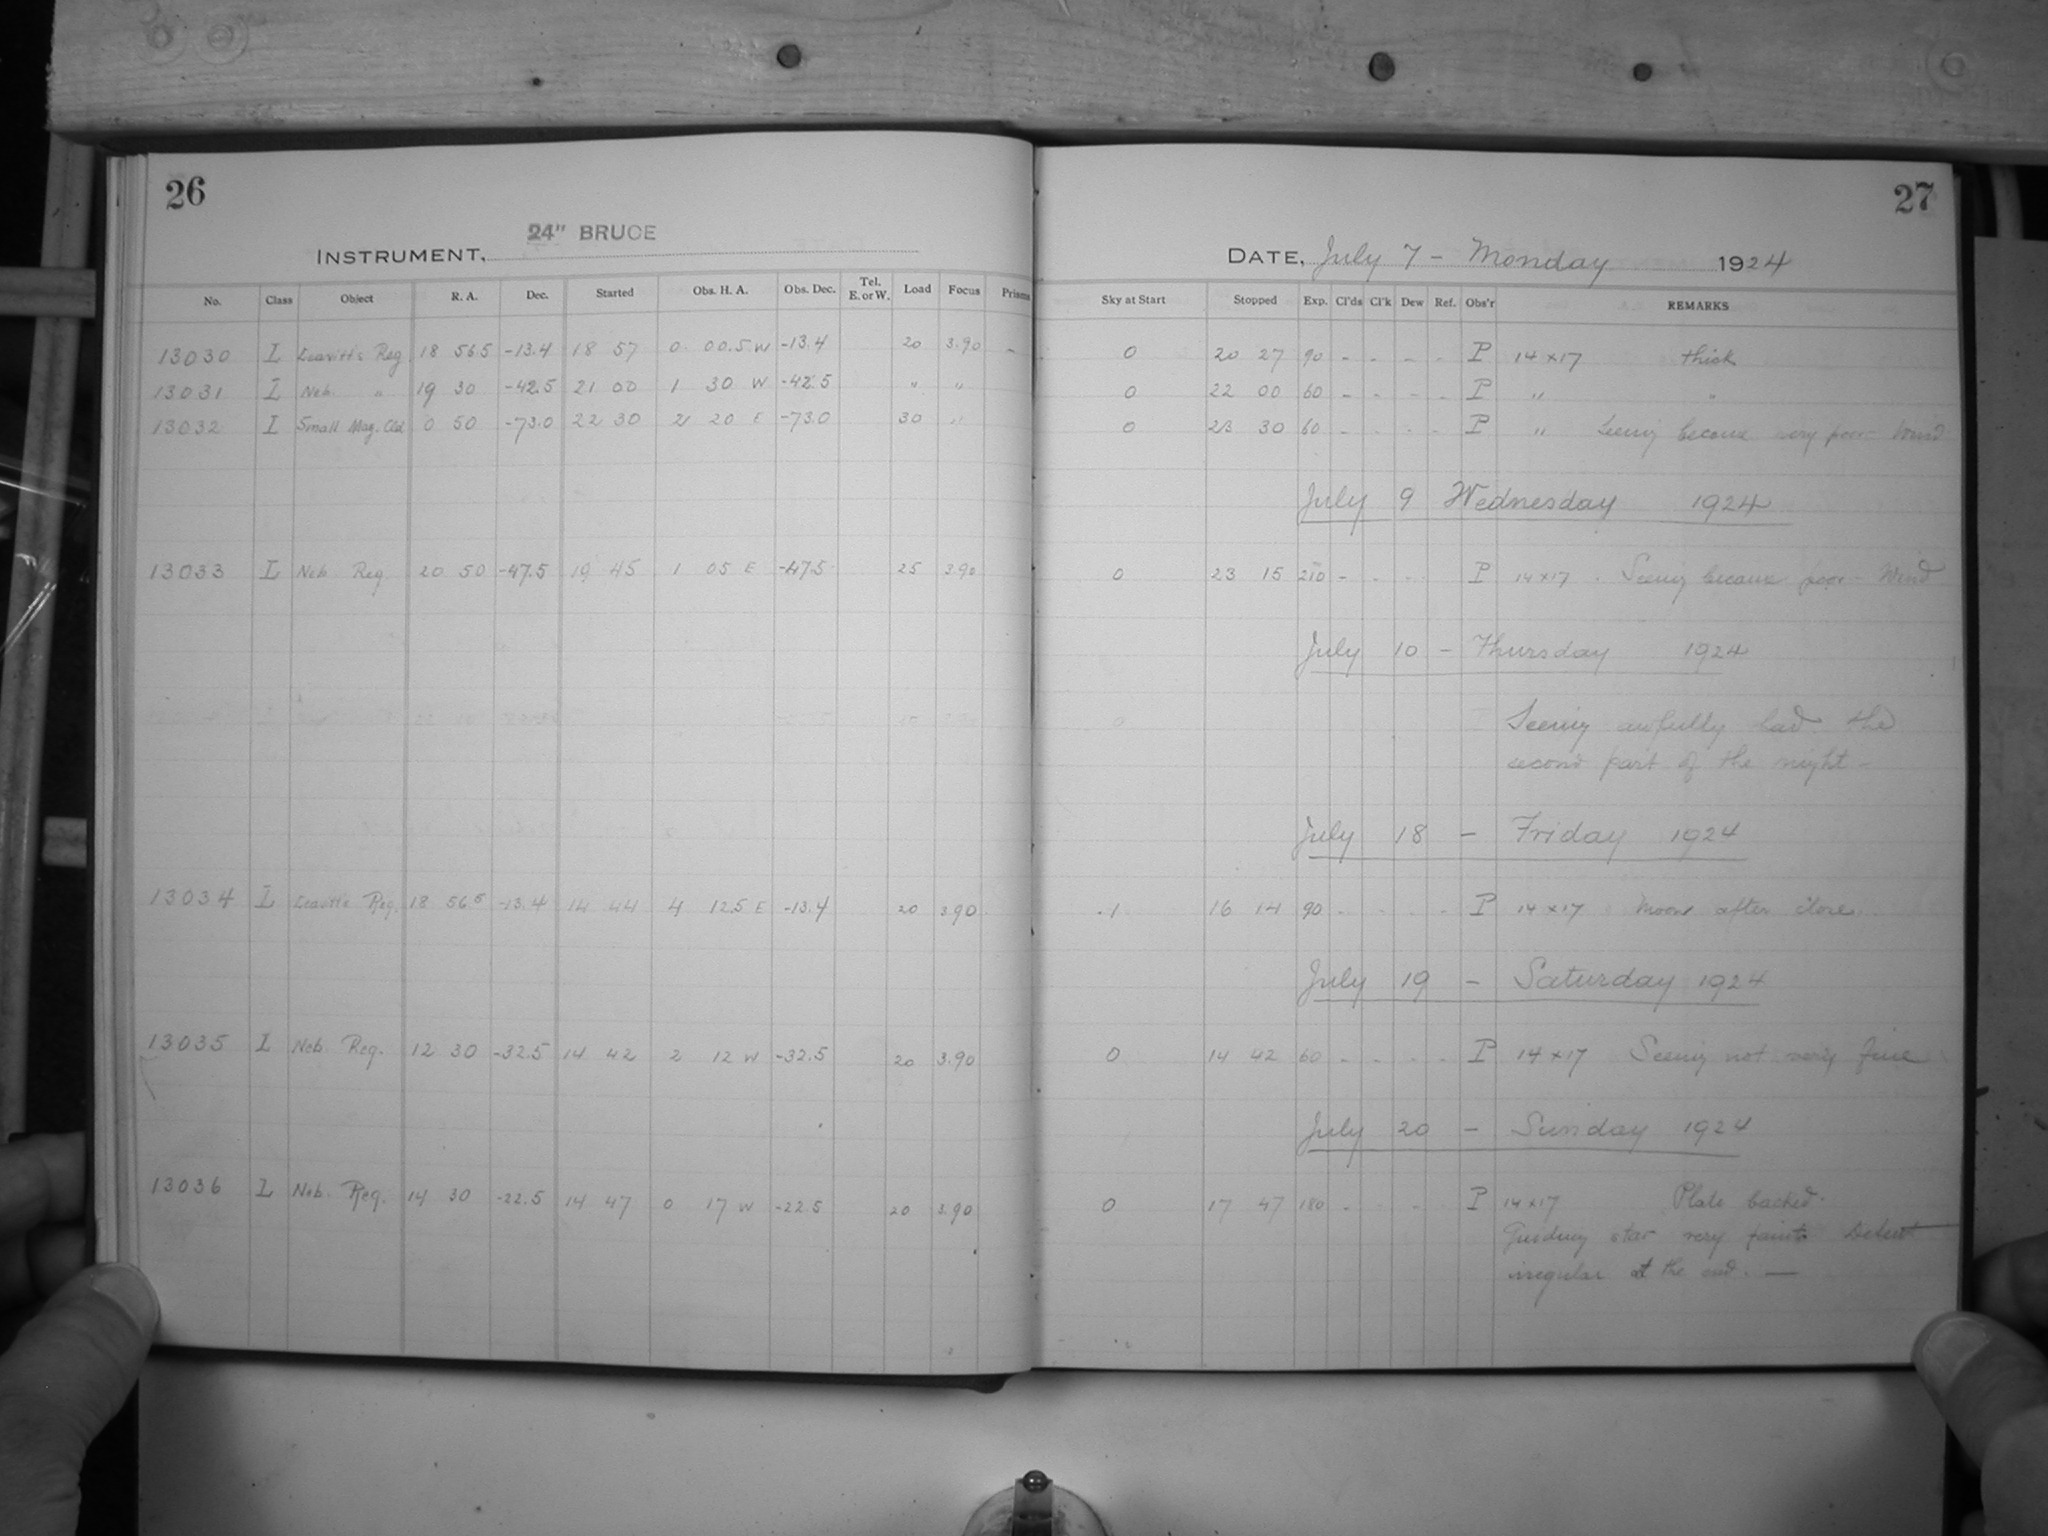 26
24" BRUCE
INSTRUMENT,
No. Class Object R. A. Dec. Started Obs. H. A. Obs. Dec. Tel. E. or W. Load Focus Prisms
13030 I Leavitt's Reg 18 56.5 -13.4 18 57 0 00.5 W -13.4 20 3.90 -
13031 I Neb. " 19 30 -42.5 21 00 1 30 W -42.5 " "
13032 I Small Mag. Cld 0 50 -73.0 22 30 2 20 E -73.0 30 "
13033 I Neb Reg 20 50 -47.5 19 45 1 05 E -47.5 25 3.90
13034 I Leavitt's Reg. 18 56.5 -13.4 14 44 4 12.5 E -13.4 20 3.90
13035 I Neb. Reg. 12 30 -32.5 14 42 2 12 W -32.5 20 3.90
13036 I Neb. Reg. 14 30 -22.5 14 47 0 17 W -22.5 20 3.90
27
DATE, July 7 - Monday 1924
Sky at Start Stopped Exp. Cl'ds Cl'k Dew Ref. Obs'r REMARKS
0 20 27 90 - - - - P 14x17 thick
0 22 00 60 - - - - P " "
0 23 30 60 - - - - P " Seeing became very poor - Wind
July 9 Wednesday 1924
0 23 15 210 - - - - P 14x17 . Seeing became poor - Wind
July 10 - Thursday 1924
Seeing awfully bad the
second part of the night -
July 18 - Friday 1924
.1 16 14 90 - - - - P 14x17 Moon after close
July 19 - Saturday 1924
0 14 42 60 - - - - P 14x17 Seeing not very fine
July 20 - Sunday 1924
0 17 47 180 - - - - P 14x17 Plate backed.
Guiding star very faint.
irregular at the end. -